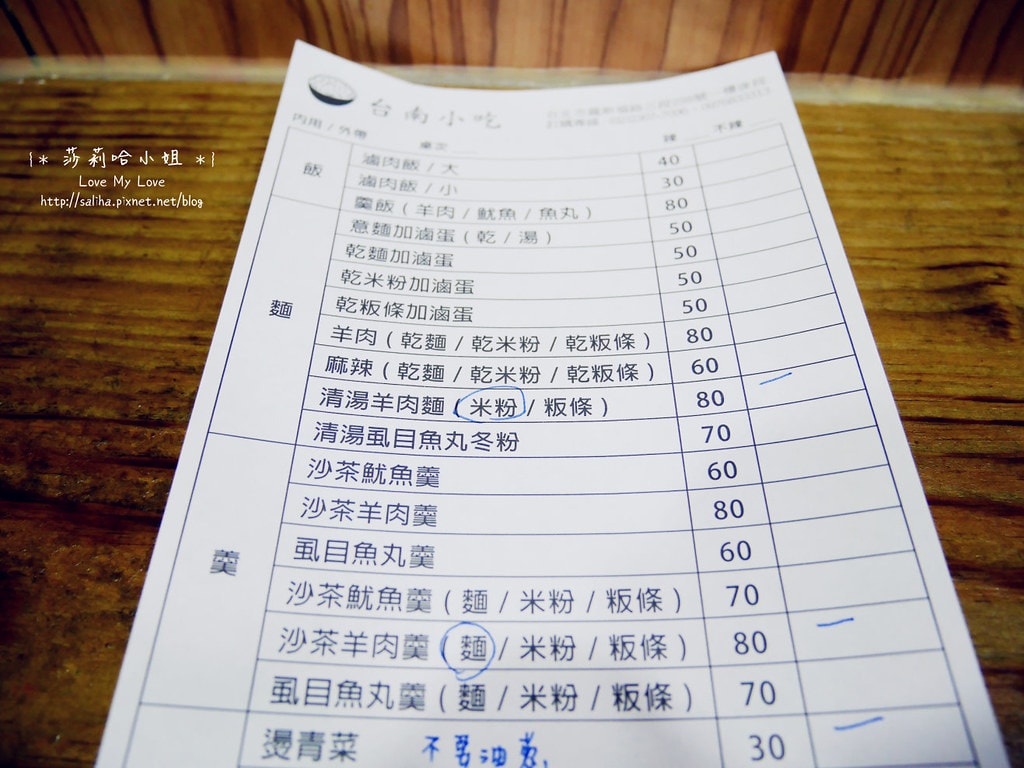 {* 莎莉哈小姐 *}
Love My Love
http://saliha.pixnet.net/blog
台南小吃
內用 / 外帶 桌次 辣 不辣
飯
滷肉飯 / 大 40
滷肉飯 / 小 30
羹飯 ( 羊肉 / 魷魚 / 魚丸 ) 80
麵
意麵加滷蛋 ( 乾 / 湯 ) 50
乾麵加滷蛋 50
乾米粉加滷蛋 50
乾粄條加滷蛋 50
羊肉 ( 乾麵 / 乾米粉 / 乾粄條 ) 80
麻辣 ( 乾麵 / 乾米粉 / 乾粄條 ) 60
清湯羊肉麵 ( 米粉 / 粄條 ) 80
清湯虱目魚丸冬粉 70
羹
沙茶魷魚羹 60
沙茶羊肉羹 80
虱目魚丸羹 60
沙茶魷魚羹 ( 麵 / 米粉 / 粄條 ) 70
沙茶羊肉羹 ( 麵 / 米粉 / 粄條 ) 80
虱目魚丸羹 ( 麵 / 米粉 / 粄條 ) 70
燙青菜 不要油蔥 30